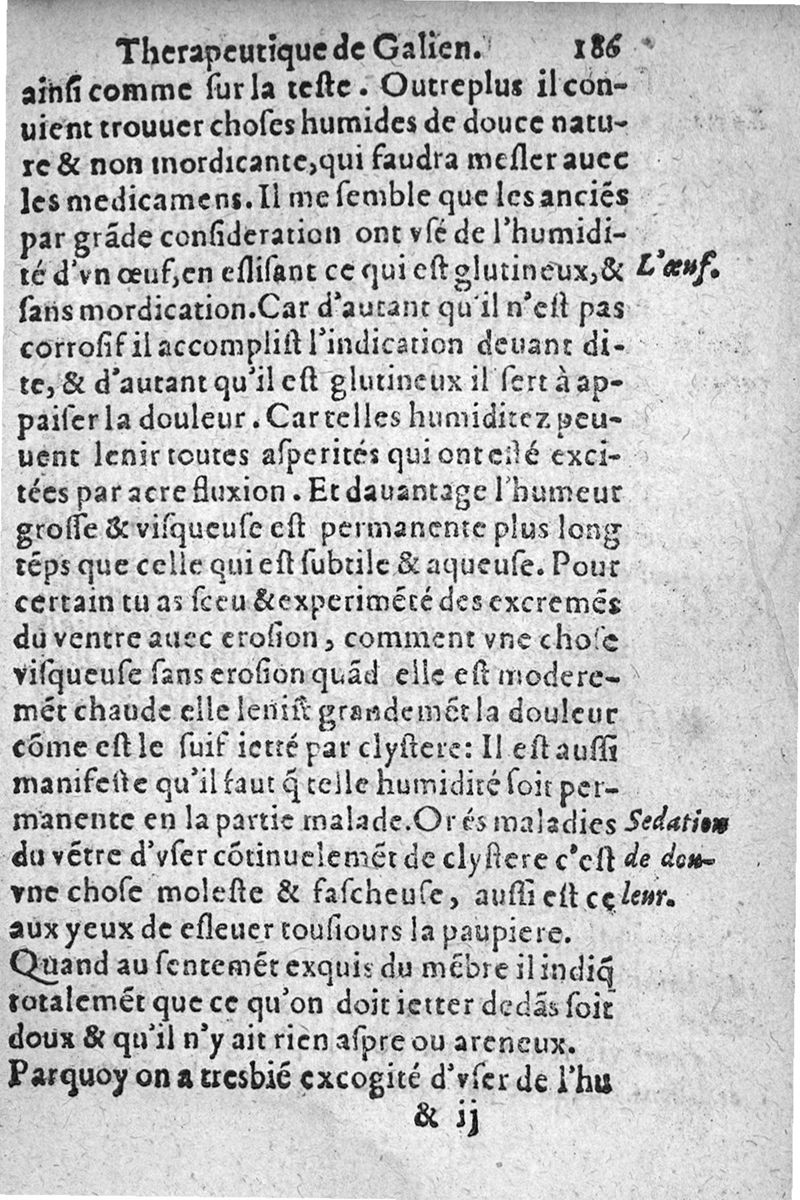 Therapeutique de Galien. 186
ainsi comme sur la teste. Outreplus il con-
uient trouuer choses humides de douce natu-
re & non mordicante, qui faudra mesler auec
les medicamens. Il me semble que les anciẽs
par grãde consideration ont vsé de l'humidi-
té d'vn œuf, en eslisant ce qui est glutineux, &
L'œuf.
sans mordication. Car d'autant qu'il n'est pas
corrosif il accomplist l'indication deuant di-
te, & d'autant qu'il est glutineux il sert à ap-
paiser la douleur. Car telles humiditez peu-
uent lenir toutes asperités qui ont esté exci-
tées par acre fluxion. Et dauantage l'humeur
grosse & visqueuse est permanente plus long
tẽps que celle qui est subtile & aqueuse. Pour
certain tu as sceu & experimẽté des excremẽs
du ventre auec erosion, comment vne chose
visqueuse sans erosion quãd elle est modere-
mẽt chaude elle lenist grandemẽt la douleur
cõme est le suif ietté par clystere: Il est aussi
manifeste qu'il faut q̃ telle humidité soit per-
manente en la partie malade. Or és maladies
du vẽtre d'vser cõtinuelemẽt de clystere c'est
vne chose moleste & fascheuse, aussi est ce
Sedation
de dou-
leur.
aux yeux de esleuer tousiours la paupiere.
Quand au sentemẽt exquis du mẽbre il indiq̃
totalemẽt que ce qu'on doit ietter dedãs soit
doux & qu'il n'y ait rien aspre ou areneux.
Parquoy on a tresbiẽ excogité d'vser de l'hu
& ij